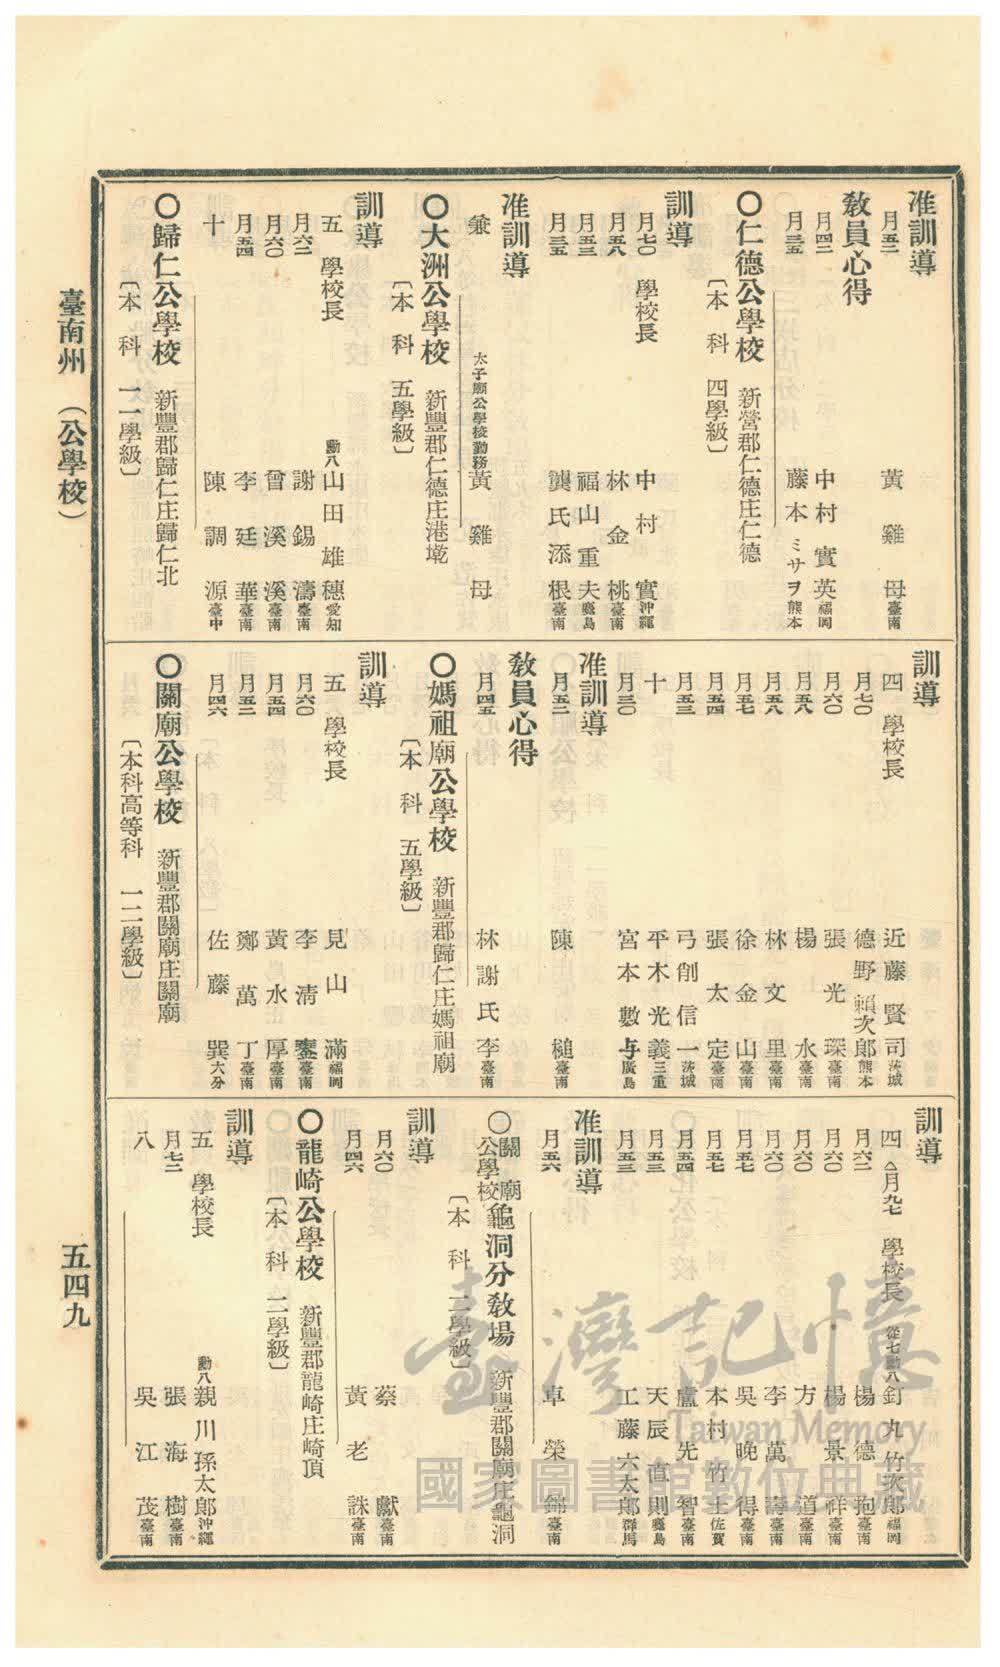 准訓導
月五二 黃雞母 臺南
教員心得
月四二 中村實英 福岡
月三五 藤本ミサヲ 熊本
〇仁德公學校 新營郡仁德庄仁德
〔本科 四學級〕
訓導
月七〇 學校長 中村實 沖繩
月五八 林金桃 臺南
月五三 福山重夫 廣島
月三五 龔氏添根 臺南
准訓導
兼 太子廟公學校勤務 黃雞母
〇大洲公學校 新豐郡仁德庄港墘
〔本科 五學級〕
訓導
五 學校長 勳八 山田雄穗 愛知
月六二 謝錫濤 臺南
月六〇 曾溪溪 臺南
月五四 李廷華 臺南
十 陳調源 臺中
〇歸仁公學校 新豐郡歸仁庄歸仁北
〔本科 一一學級〕
訓導
四 學校長 近藤賢司 茨城
月七〇 德野賴次郎 熊本
月六〇 張光琛 臺南
月五八 楊水 臺南
月五八 林文里 臺南
月五七 徐金山 臺南
月五四 張太定 臺南
月五三 弓削信一 茨城
十 平木光義 三重
月三〇 宮本數与 廣島
准訓導
月五二 陳槌 臺南
教員心得
月四五 林謝氏李 臺南
〇媽祖廟公學校 新豐郡歸仁庄媽祖廟
〔本科 五學級〕
訓導
五 學校長 見山滿 福岡
月六〇 李清鑾 臺南
月五四 黃水厚 臺南
月五二 鄭萬丁 臺南
月四六 佐藤巽 大分
〇關廟公學校 新豐郡關廟庄關廟
〔本科高等科 一二學級〕
訓導
四 月九七 學校長 從七勳八 釘丸竹次郎 福岡
月六二 楊德抱 臺南
月六〇 楊景祥 臺南
月六〇 方道 臺南
月六〇 李萬壽 臺南
月五七 吳晚得 臺南
月五七 本村竹士 佐賀
月五四 盧先智 臺南
月五三 天辰直則 廣島
月五三 工藤六太郎 群馬
准訓導
月五六 卓榮錦 臺南
〇關廟公學校龜洞分教場 新豐郡關廟庄龜洞
〔本科 二學級〕
訓導
月六〇 蔡獻 臺南
月四六 黃老誅 臺南
〇龍崎公學校 新豐郡龍崎庄崎頂
〔本科 二學級〕
訓導
五 學校長 勳八 親川孫太郎 沖繩
月七二 張海樹 臺南
八 吳江茂 臺南
臺南州(公學校) 五四九
臺灣記憶
Taiwan Memory
國家圖書館數位典藏